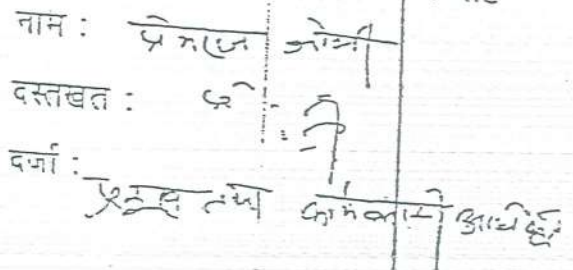 नाम : प्रेमराज जोशी
दस्तखत :
दर्जा : प्रमुख तथा कार्यकारी